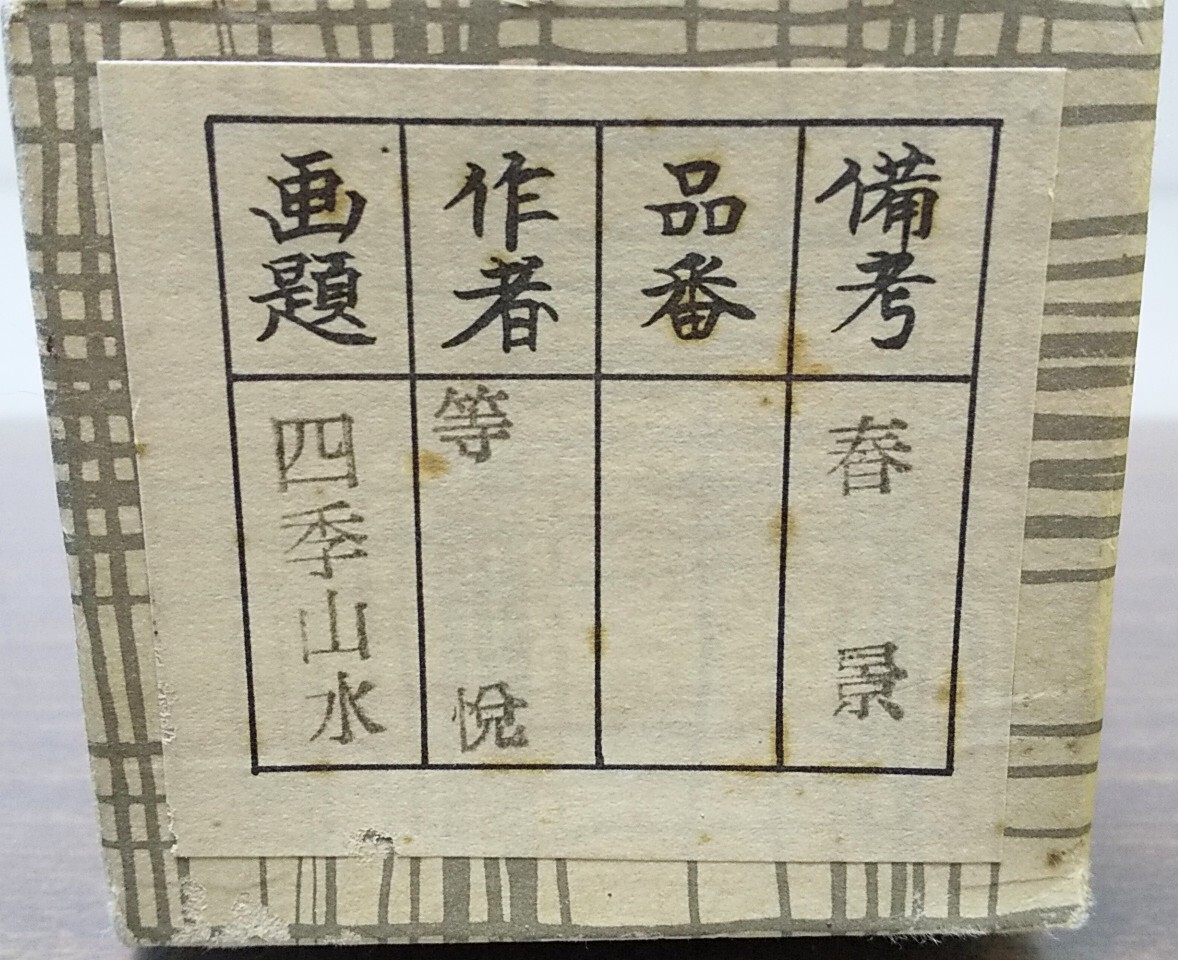 画題
四季山水
作者
等悅
品番
備考
春景